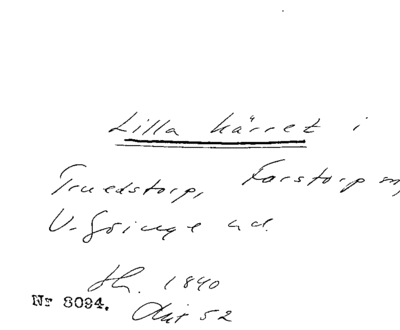 Lilla kärret i
Truedstorp, Farstorp sn,
V. Göinge hd.
Sk. 1840
Akt 52
Nr 8094.